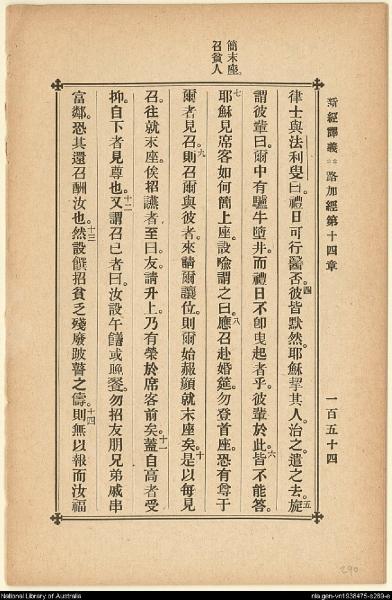 新經譯義 路加經第十四章 一百五十四
簡末座。
召貧人
律士與法利叟曰。禮日可行醫否。四彼皆默然。耶穌挈其人。治之。遣之去。五旋
謂彼輩曰。爾中有驢牛墮井。而禮日不卽曳起者乎。六彼輩於此。皆不能答。
七耶穌見席客如何簡上座。設喩謂之曰。八應召赴婚筵。勿登首座。恐有尊于
爾者見召。九則召爾與彼者來。請爾讓位。則爾始赧顏就末座矣。十是以每見
召。往就末座。俟招讌者至曰。友請升上。乃有榮於席客前矣。十一蓋自高者受
抑。自下者見尊也。十二又謂召己者曰。汝設午饍或晚餐。勿招友朋兄弟戚串
富鄰。恐其還召酬汝也。十三然設饌。招貧乏殘廢跛瞽之儔。十四則無以報而汝福
290
National Library of Australia
nla.gen-vn1938475-s269-e